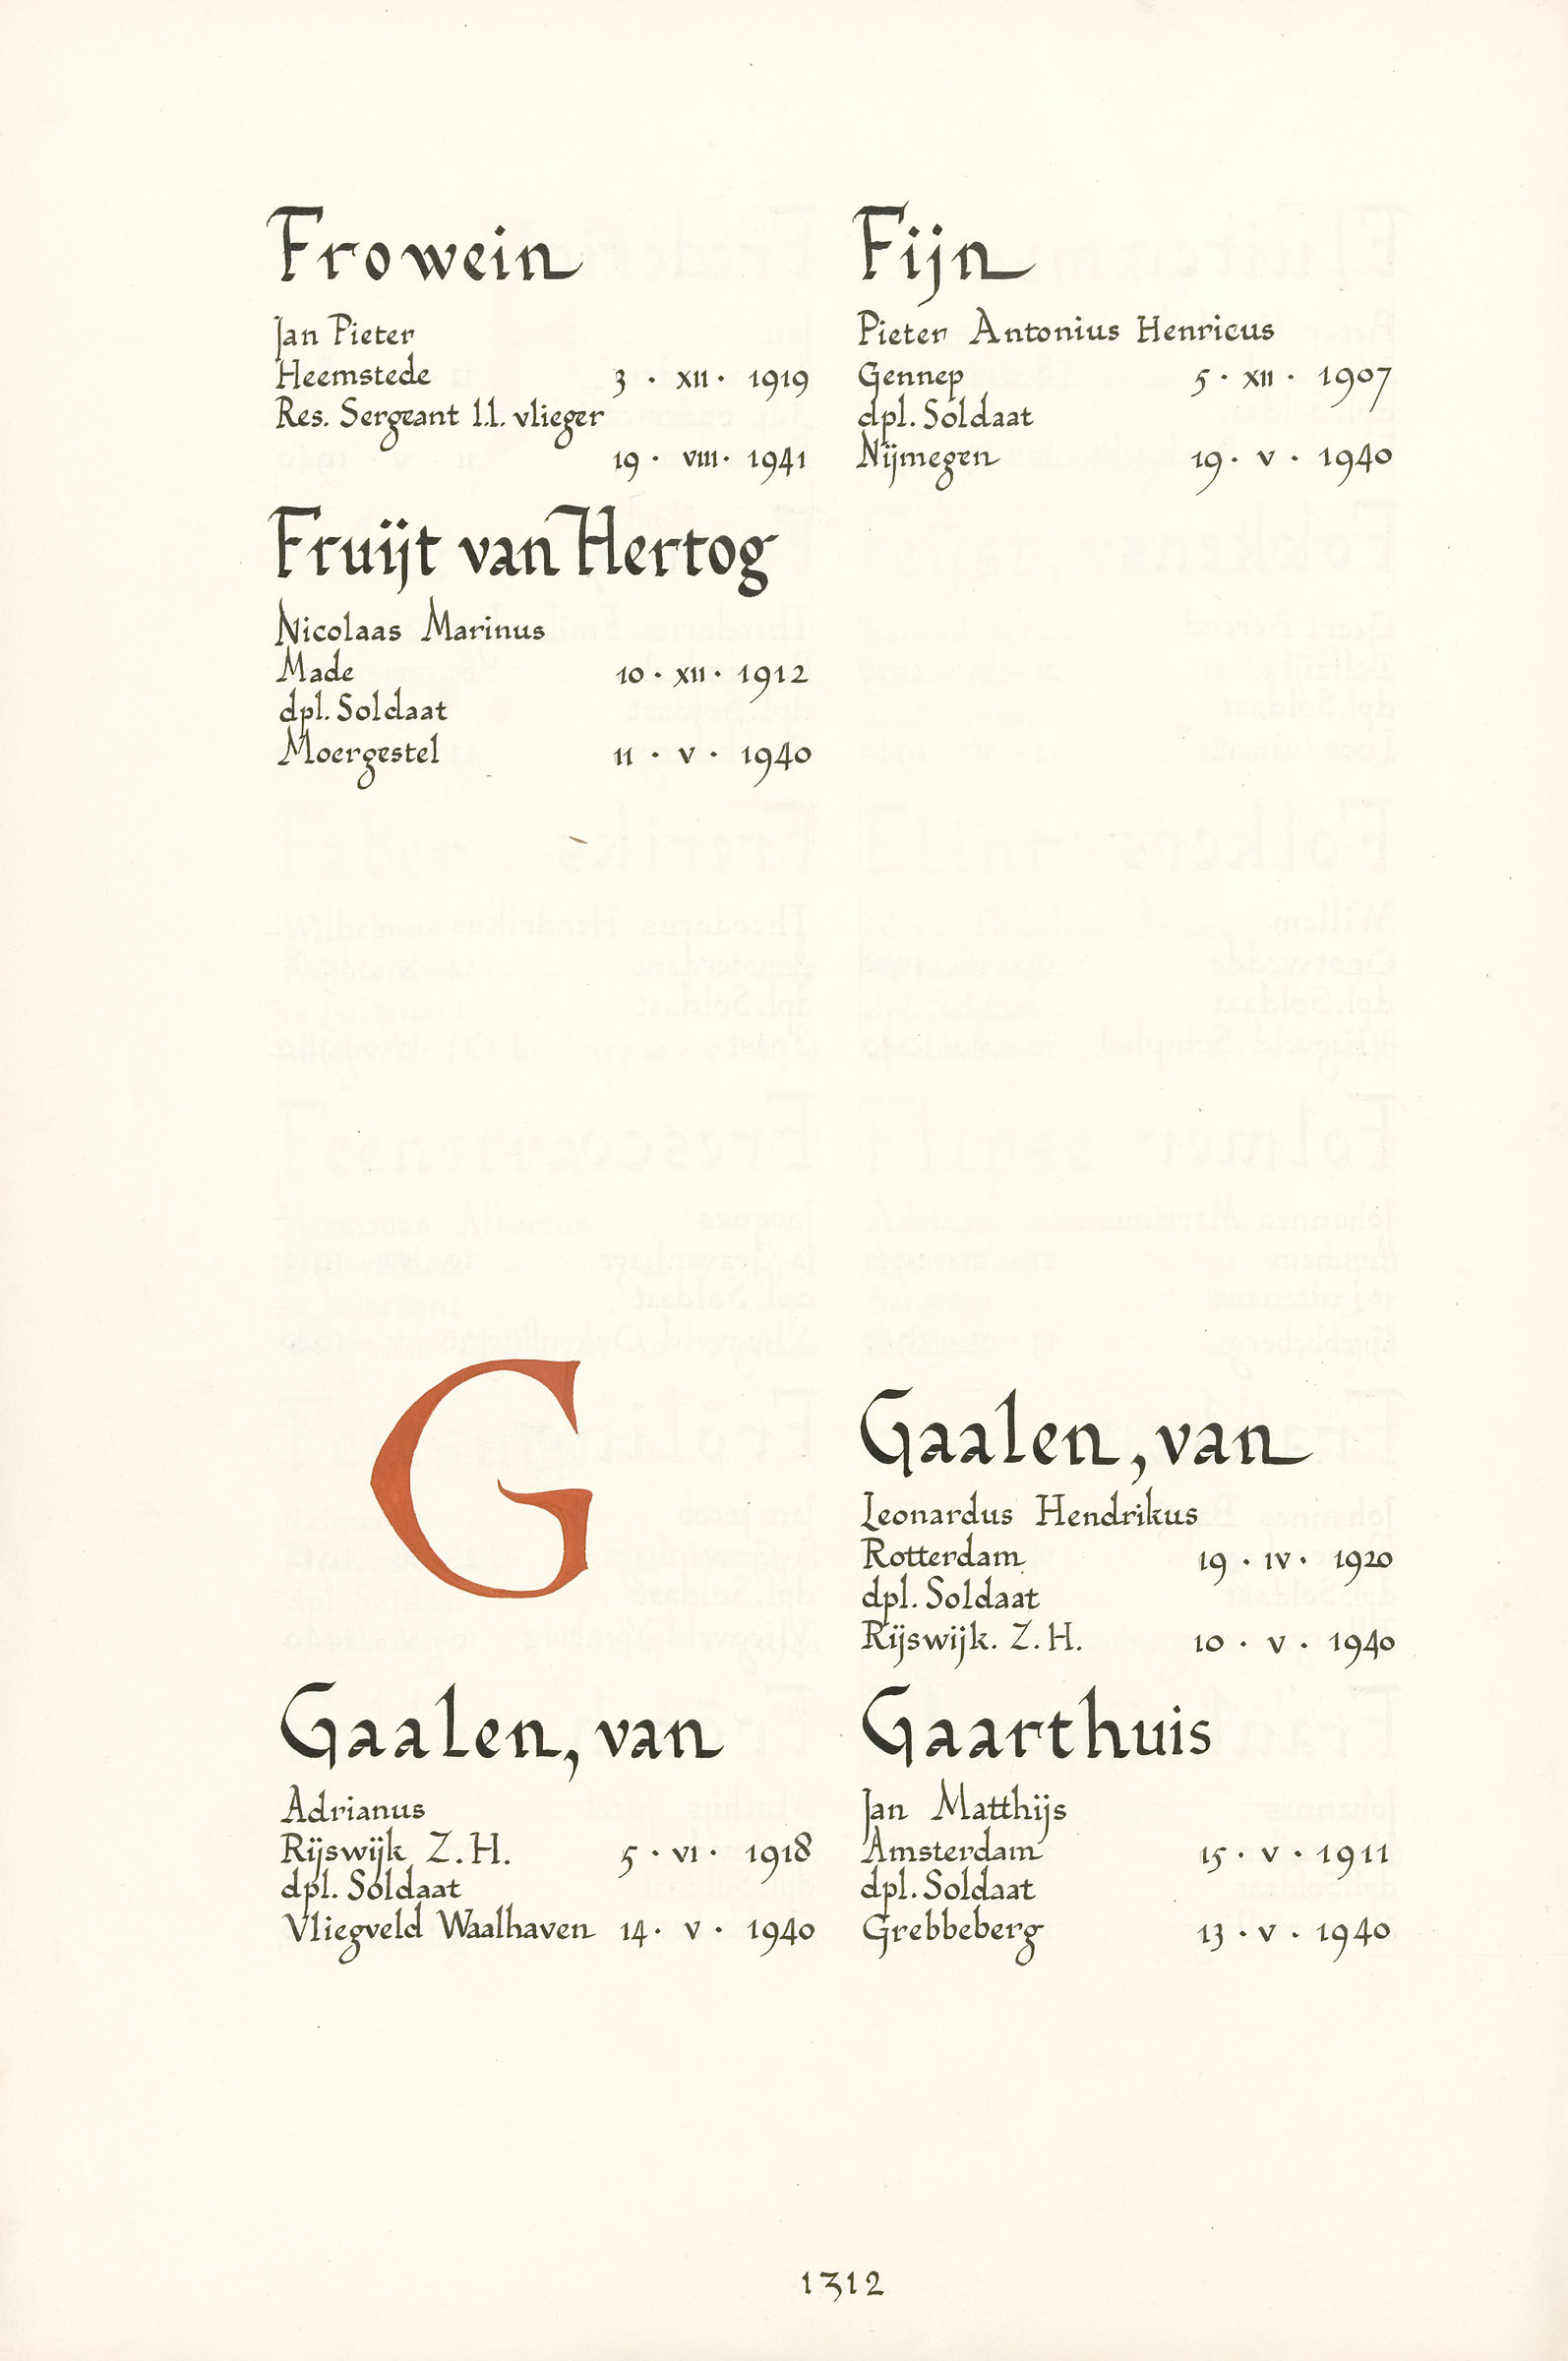 Frowein
Jan Pieter
Heemstede 3 · XII · 1919
Res. Sergeant l.l. vlieger
19 · VIII · 1941
Fruijt van Hertog
Nicolaas Marinus
Made 10 · XII · 1912
dpl. Soldaat
Moergestel 11 · V · 1940
Fijn
Pieter Antonius Henricus
Gennep 5 · XII · 1907
dpl. Soldaat
Nijmegen 19 · V · 1940
G
Gaalen, van
Adrianus
Rijswijk Z.H. 5 · VI · 1918
dpl. Soldaat
Vliegveld Waalhaven 14 · V · 1940
Gaalen, van
Leonardus Hendrikus
Rotterdam 19 · IV · 1920
dpl. Soldaat
Rijswijk. Z.H. 10 · V · 1940
Gaarthuis
Jan Matthijs
Amsterdam 15 · V · 1911
dpl. Soldaat
Grebbeberg 13 · V · 1940
1312